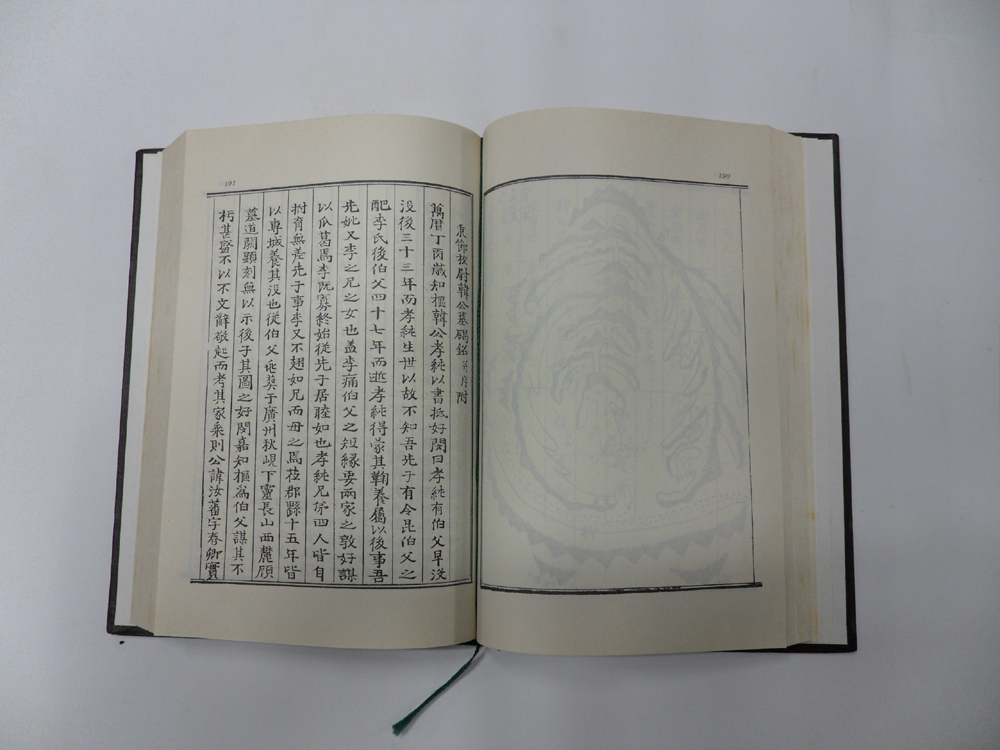 190
191
秉節校尉韓公墓碣銘 幷序附
萬曆丁丙歲知樞韓公孝純以書抵好閔曰孝純有伯父早沒
没後三十三年而孝純生世以故不知吾先子有令昆伯父之
配李氏後伯父四十七年而逝孝純得蒙其鞠養屬以後事吾
先妣又李之兄之女也盖李痛伯父之短緣要兩家之敦好謀
以瓜葛焉李旣寡終始從先子居睦如也孝純兄弟四人皆自
拊育無差先子事李又不翅如兄而母之焉莅郡縣十五年皆
以專城養其没也從伯父兆葬于廣州秋峴下靈長山西麓顧
墓道闕顯刻無以示後子其圖之好閔嘉知樞爲伯父謀其不
朽甚盛不以不文辭敬起而考其家乘則公諱汝蕃字春卿實